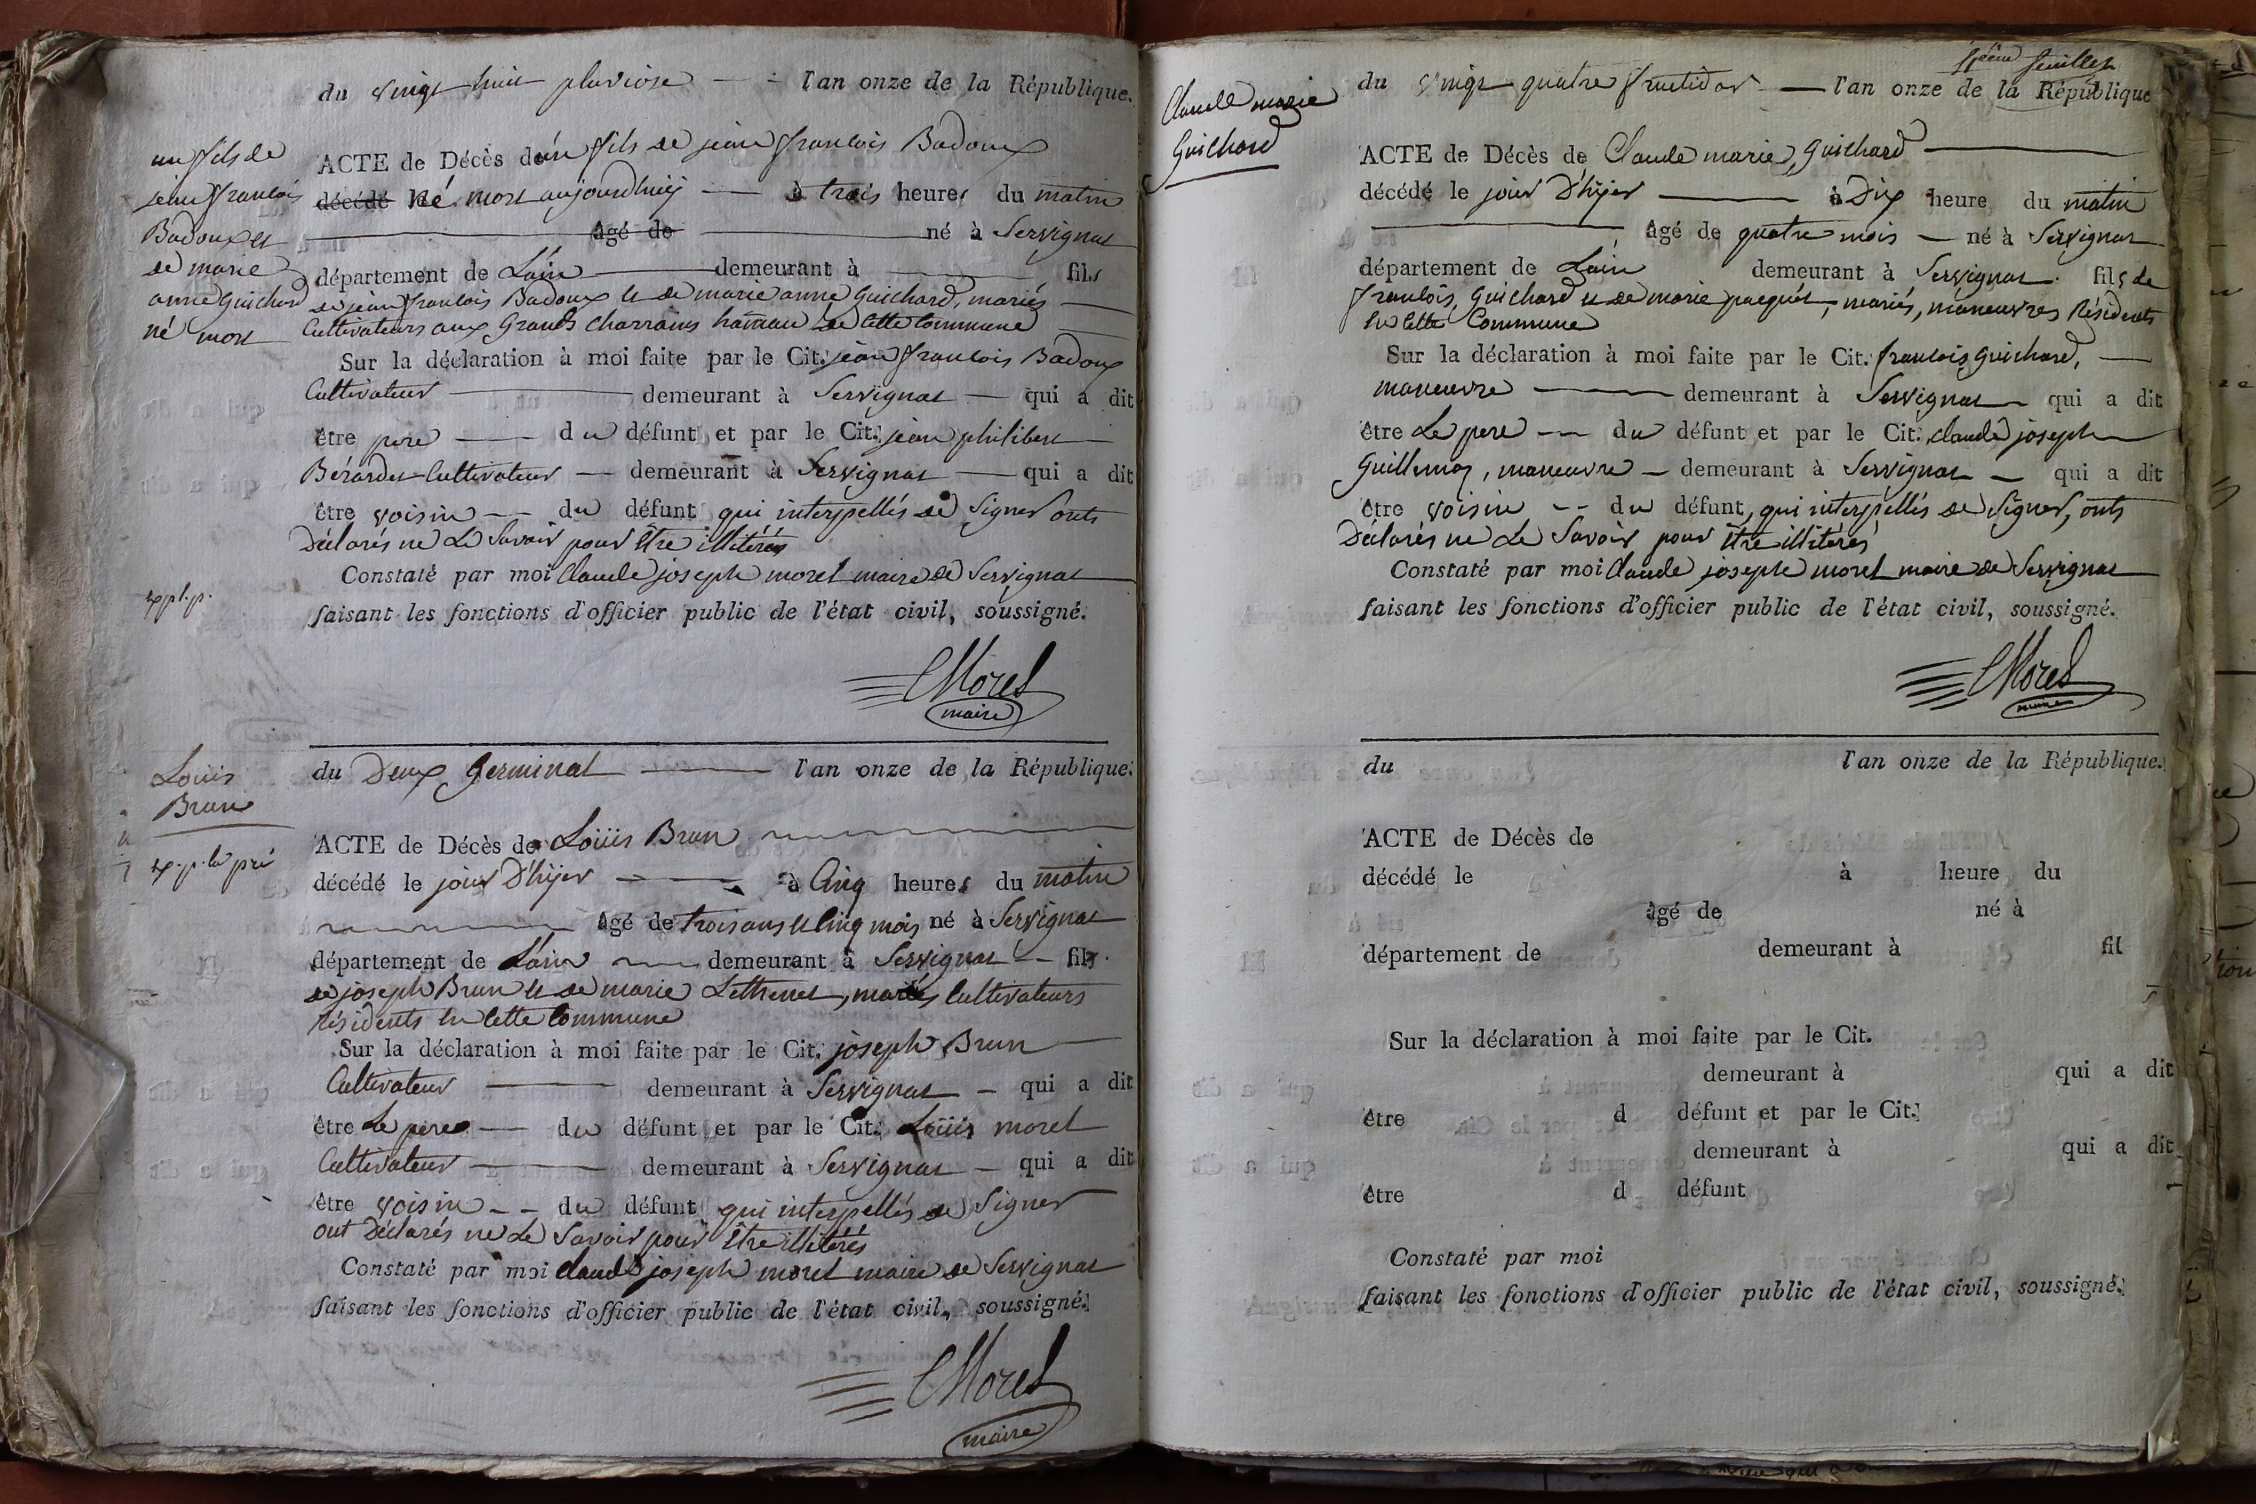 du vingt huit pluviose — l'an onze de la République.
un fils de
jean francois
Badoux et
de marie
anne Guichard
né mort
ACTE de Décès de un fils de jean francois Badoux
décédé né mort aujourdhuij — à trois heures du matin
âgé de — né à Servignat
département de L'ain — demeurant à — fils
de jean francois Badoux et de marie anne Guichard, mariés
Cultivateurs aux Grands Charrains hamau de cette Commune
Sur la déclaration à moi faite par le Cit. jean francois Badoux
Cultivateur — demeurant à Servignat — qui a dit
être pere — du défunt et par le Cit. jean philibert
Bérardet Cultivateur — demeurant à Servignat — qui a dit
être voisin — du défunt qui interpellés de Signer onts
Déclarés ne Le Savoir pour être illitérés
Constaté par moi Claude joseph morel maire de Servignat
faisant les fonctions d'officier public de l'état civil, soussigné.
CMorel
maire
Louis
Brun
du Deux Germinal — l'an onze de la République.
ACTE de Décès de Loüis Brun
décédé le jour D'hijer — à Cinq heures du matin
âgé de trois ans et Cinq mois né à Servignat
département de L'ain — demeurant à Servignat — fils
de joseph Brun et de marie Lethenet, mariés Cultivateurs
résidents En Cette Commune
Sur la déclaration à moi faite par le Cit. joseph Brun
Cultivateur — demeurant à Servignat — qui a dit
être Le pere — du défunt et par le Cit. Loüis morel
Cultivateur — demeurant à Servignat — qui a dit
être voisin — du défunt qui interpellés de Signer
ont Déclarés ne Le Savoir pour être illitérés
Constaté par moi Claude joseph morel maire de Servignat
faisant les fonctions d'officier public de l'état civil, soussigné.
CMorel
maire
feuillet
Claude marie
Guichard
du vingt quatre fructidor — l'an onze de la République
ACTE de Décès de Claude marie Guichard
décédé le jour D'hijer — à Dix heure du matin
âgé de quatre mois — né à Servignat
département de L'ain demeurant à Servignat. fils de
francois Guichard et de marie pacquet, mariés, manœuvres Résidents
En Cette Commune
Sur la déclaration à moi faite par le Cit. francois Guichard,
manœuvre — demeurant à Servignat — qui a dit
être Le pere — du défunt et par le Cit. claude joseph
Guillemoz, manœuvre — demeurant à Servignat — qui a dit
être voisin — du défunt, qui interpellés de Signer, onts
Déclarés ne Le Savoir pour être illitérés
Constaté par moi Claude joseph morel maire de Servignat
faisant les fonctions d'officier public de l'état civil, soussigné.
CMorel
maire
du l'an onze de la République.
ACTE de Décès de
décédé le à heure du
âgé de né à
département de demeurant à fil
Sur la déclaration à moi faite par le Cit.
demeurant à qui a dit
être d défunt et par le Cit.
demeurant à qui a dit
être d défunt
Constaté par moi
faisant les fonctions d'officier public de l'état civil, soussigné.